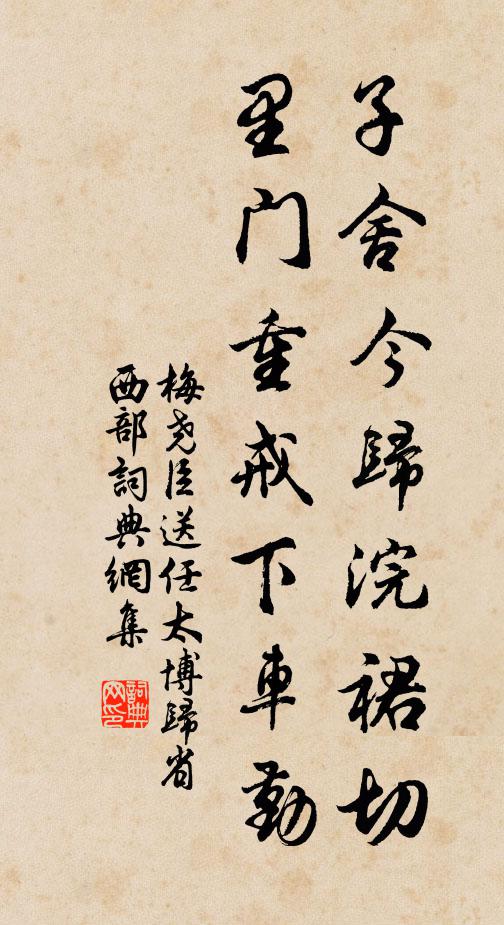 子舍今歸浣裙切
里门重戒下車勤
梅尧臣送任太博歸省
西部詞典網集
詞典网印